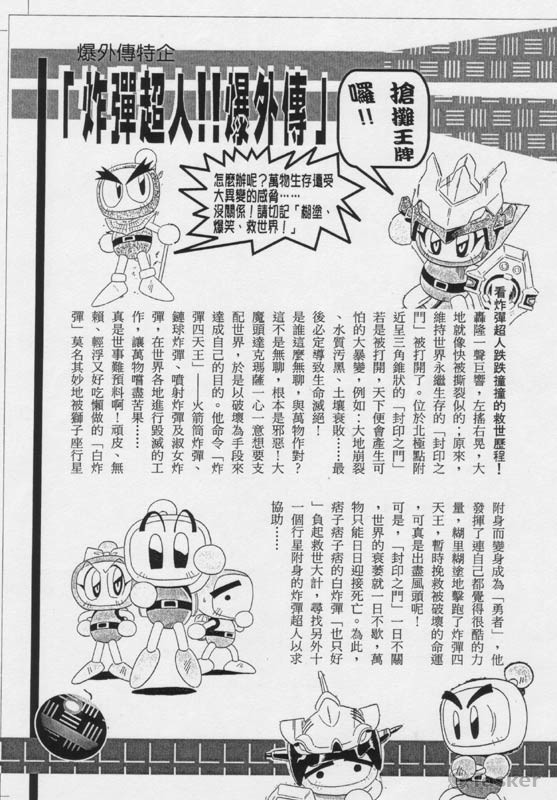 爆外傳特企
「炸彈超人!!爆外傳」
搶攤王牌
囉!!
怎麼辦呢?萬物生存遭受
大異變的威脅……
沒關係!請切記「糊塗、
爆笑、救世界!」
看炸彈超人跌跌撞撞的救世歷程!
轟隆一聲巨響,左搖右晃,大
地就像快被撕裂似的;原來,
維持世界永繼生存的「封印之
門」被打開了。位於北極點附
近呈三角錐狀的「封印之門」
若是被打開,天下便會產生可
怕的大暴變,例如:大地崩裂
、水質污黑、土壤衰敗……最
後必定導致生命滅絕!
是誰這麼無聊,與萬物作對?
這不是無聊,根本是邪惡!大
魔頭達克瑪薩一心一意想要支
配世界,於是以破壞為手段來
達成自己的目的。他命令「炸
彈四天王」——火箭筒炸彈、
鏈球炸彈、噴射炸彈及淑女炸
彈,在世界各地進行毀滅的工
作,讓萬物嚐盡苦果……
真是世事難預料啊!頑皮、無
賴、輕浮又好吃懶做的「白炸
彈」莫名其妙地被獅子座行星
附身而變身成為「勇者」,他
發揮了連自己都覺得很酷的力
量,糊里糊塗地擊跑了炸彈四
天王,暫時挽救被破壞的命運
,可真是出盡風頭呢!
可是,「封印之門」一日不關
,世界的衰萎就一日不歇,萬
物只能日日迎接死亡。為此,
痞子痞子的白炸彈「也只好
」負起救世大計,尋找另外十
一個行星附身的炸彈超人以求
協助……